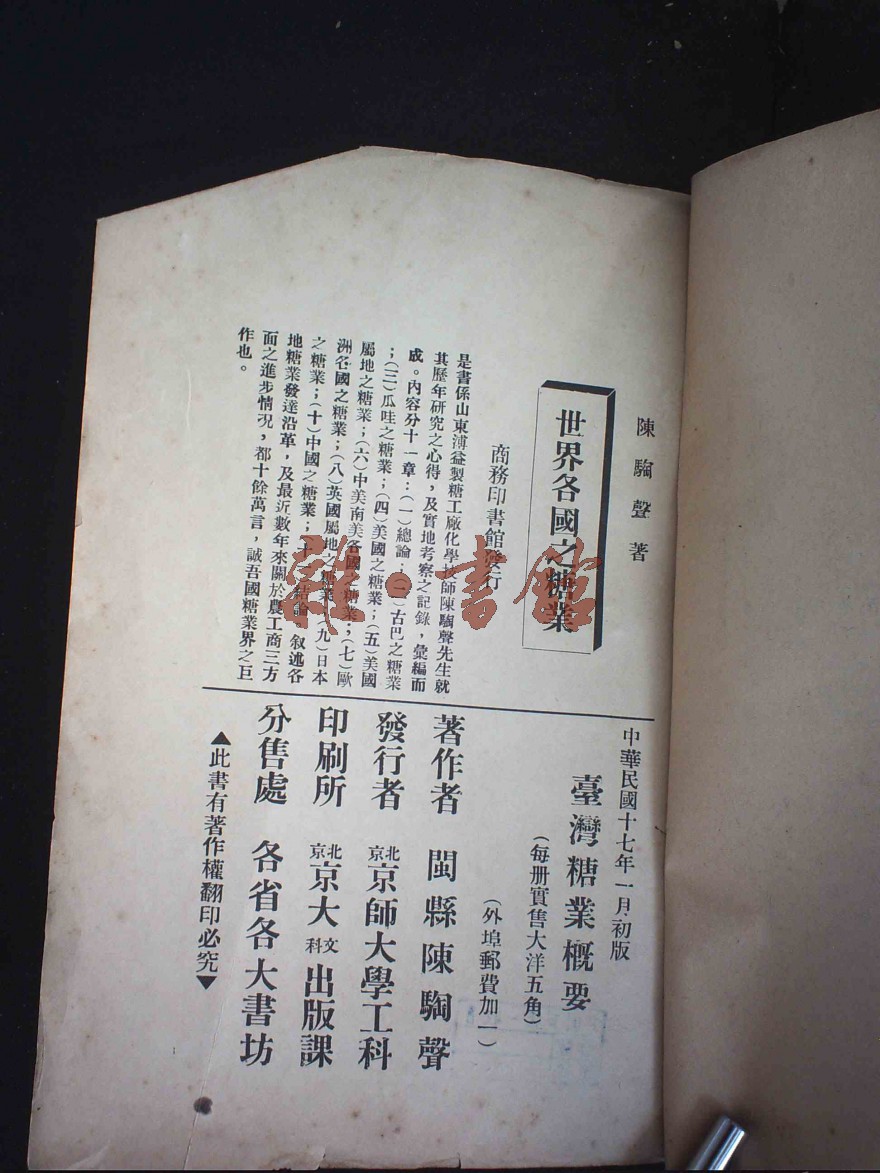 陳騊聲著
世界各國之糖業
商務印書館發行
是書係山東溥益製糖工廠化學技師陳騊聲先生就
其歷年研究之心得，及實地考察之記錄，彙編而
成。內容分十一章：（一）總論；（二）古巴之糖業
；（三）瓜哇之糖業；（四）美國之糖業；（五）美國
屬地之糖業；（六）中美南美各國之糖業；（七）歐
洲各國之糖業；（八）英國屬地之糖業；（九）日本
之糖業；（十）中國之糖業；十一結論。叙述各
地糖業發達沿革，及最近數年來關於農工商三方
面之進步情况，都十餘萬言，誠吾國糖業界之巨
作也。
中華民國十七年一月初版
臺灣糖業概要
（每册實售大洋五角）
（外埠郵費加一）
著作者 閩縣陳騊聲
發行者 北京京師大學工科
印刷所 北京京大文科出版課
分售處 各省各大書坊
▲此書有著作權翻印必究▼
雜·書館